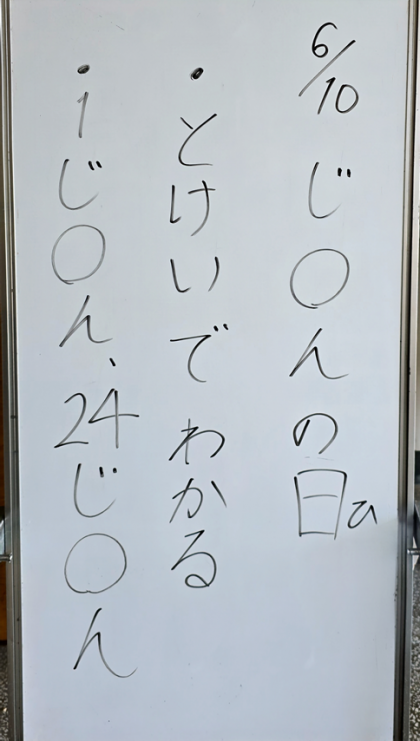 6/10 じ〇んの日ひ
・とけいでわかる
・1じ〇ん、24じ〇ん